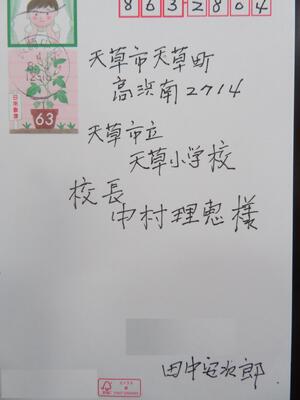 863-2804
天草市天草町
高浜南2714
天草市立
天草小学校
校長
中村理恵様
日本郵便
63
田中定次郎